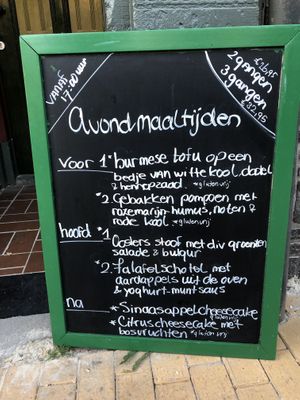 VANAF
17:00 uur
2 gangen
3 gangen
€32,95
Avondmaaltijden
voor 1* burmese tofu op een
bedje van witte kool, dadel
& hennepzaad. *glutenvrij
*2 Gebakken pompoen met
rozemarijn-humus, noten &
rode kool *glutenvrij
hoofd *1
Oosters stoof met div groenten
salade & bulgur
*2. Falafelschotel met
aardappels uit de oven
& yoghurt-muntsaus
na * Sinaasappelcheesecake
glutenvrij
* Citruscheesecake met
bosvruchten *glutenvrij